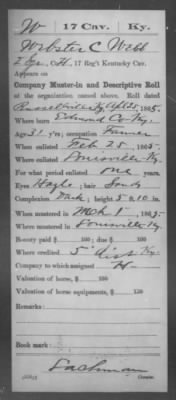 W | 17 Cav. | Ky.
Webster C Webb
Co. H, 17 Reg't Kentucky Cav.
Appears on
Company Muster-in and Descriptive Roll
of the organization named above. Roll dated
Russellville Ky, Apl 25, 1865.
Where born Edmond Co Ky.
Age 31 y'rs; occupation Farmer
When enlisted Feb 25, 1865.
Where enlisted Louisville Ky.
For what period enlisted one years.
Eyes Hazle; hair Sandy
Complexion Dark; height 5 ft. 10 in.
When mustered in Mch 1, 1865.
Where mustered in Louisville Ky.
Bounty paid $ 100; due $ 100
Where credited 5" dist Ky.
Company to which assigned H
Valuation of horse, $ 100
Valuation of horse equipments, $ 100
Remarks:
Book mark:
Lachman
Copyist.